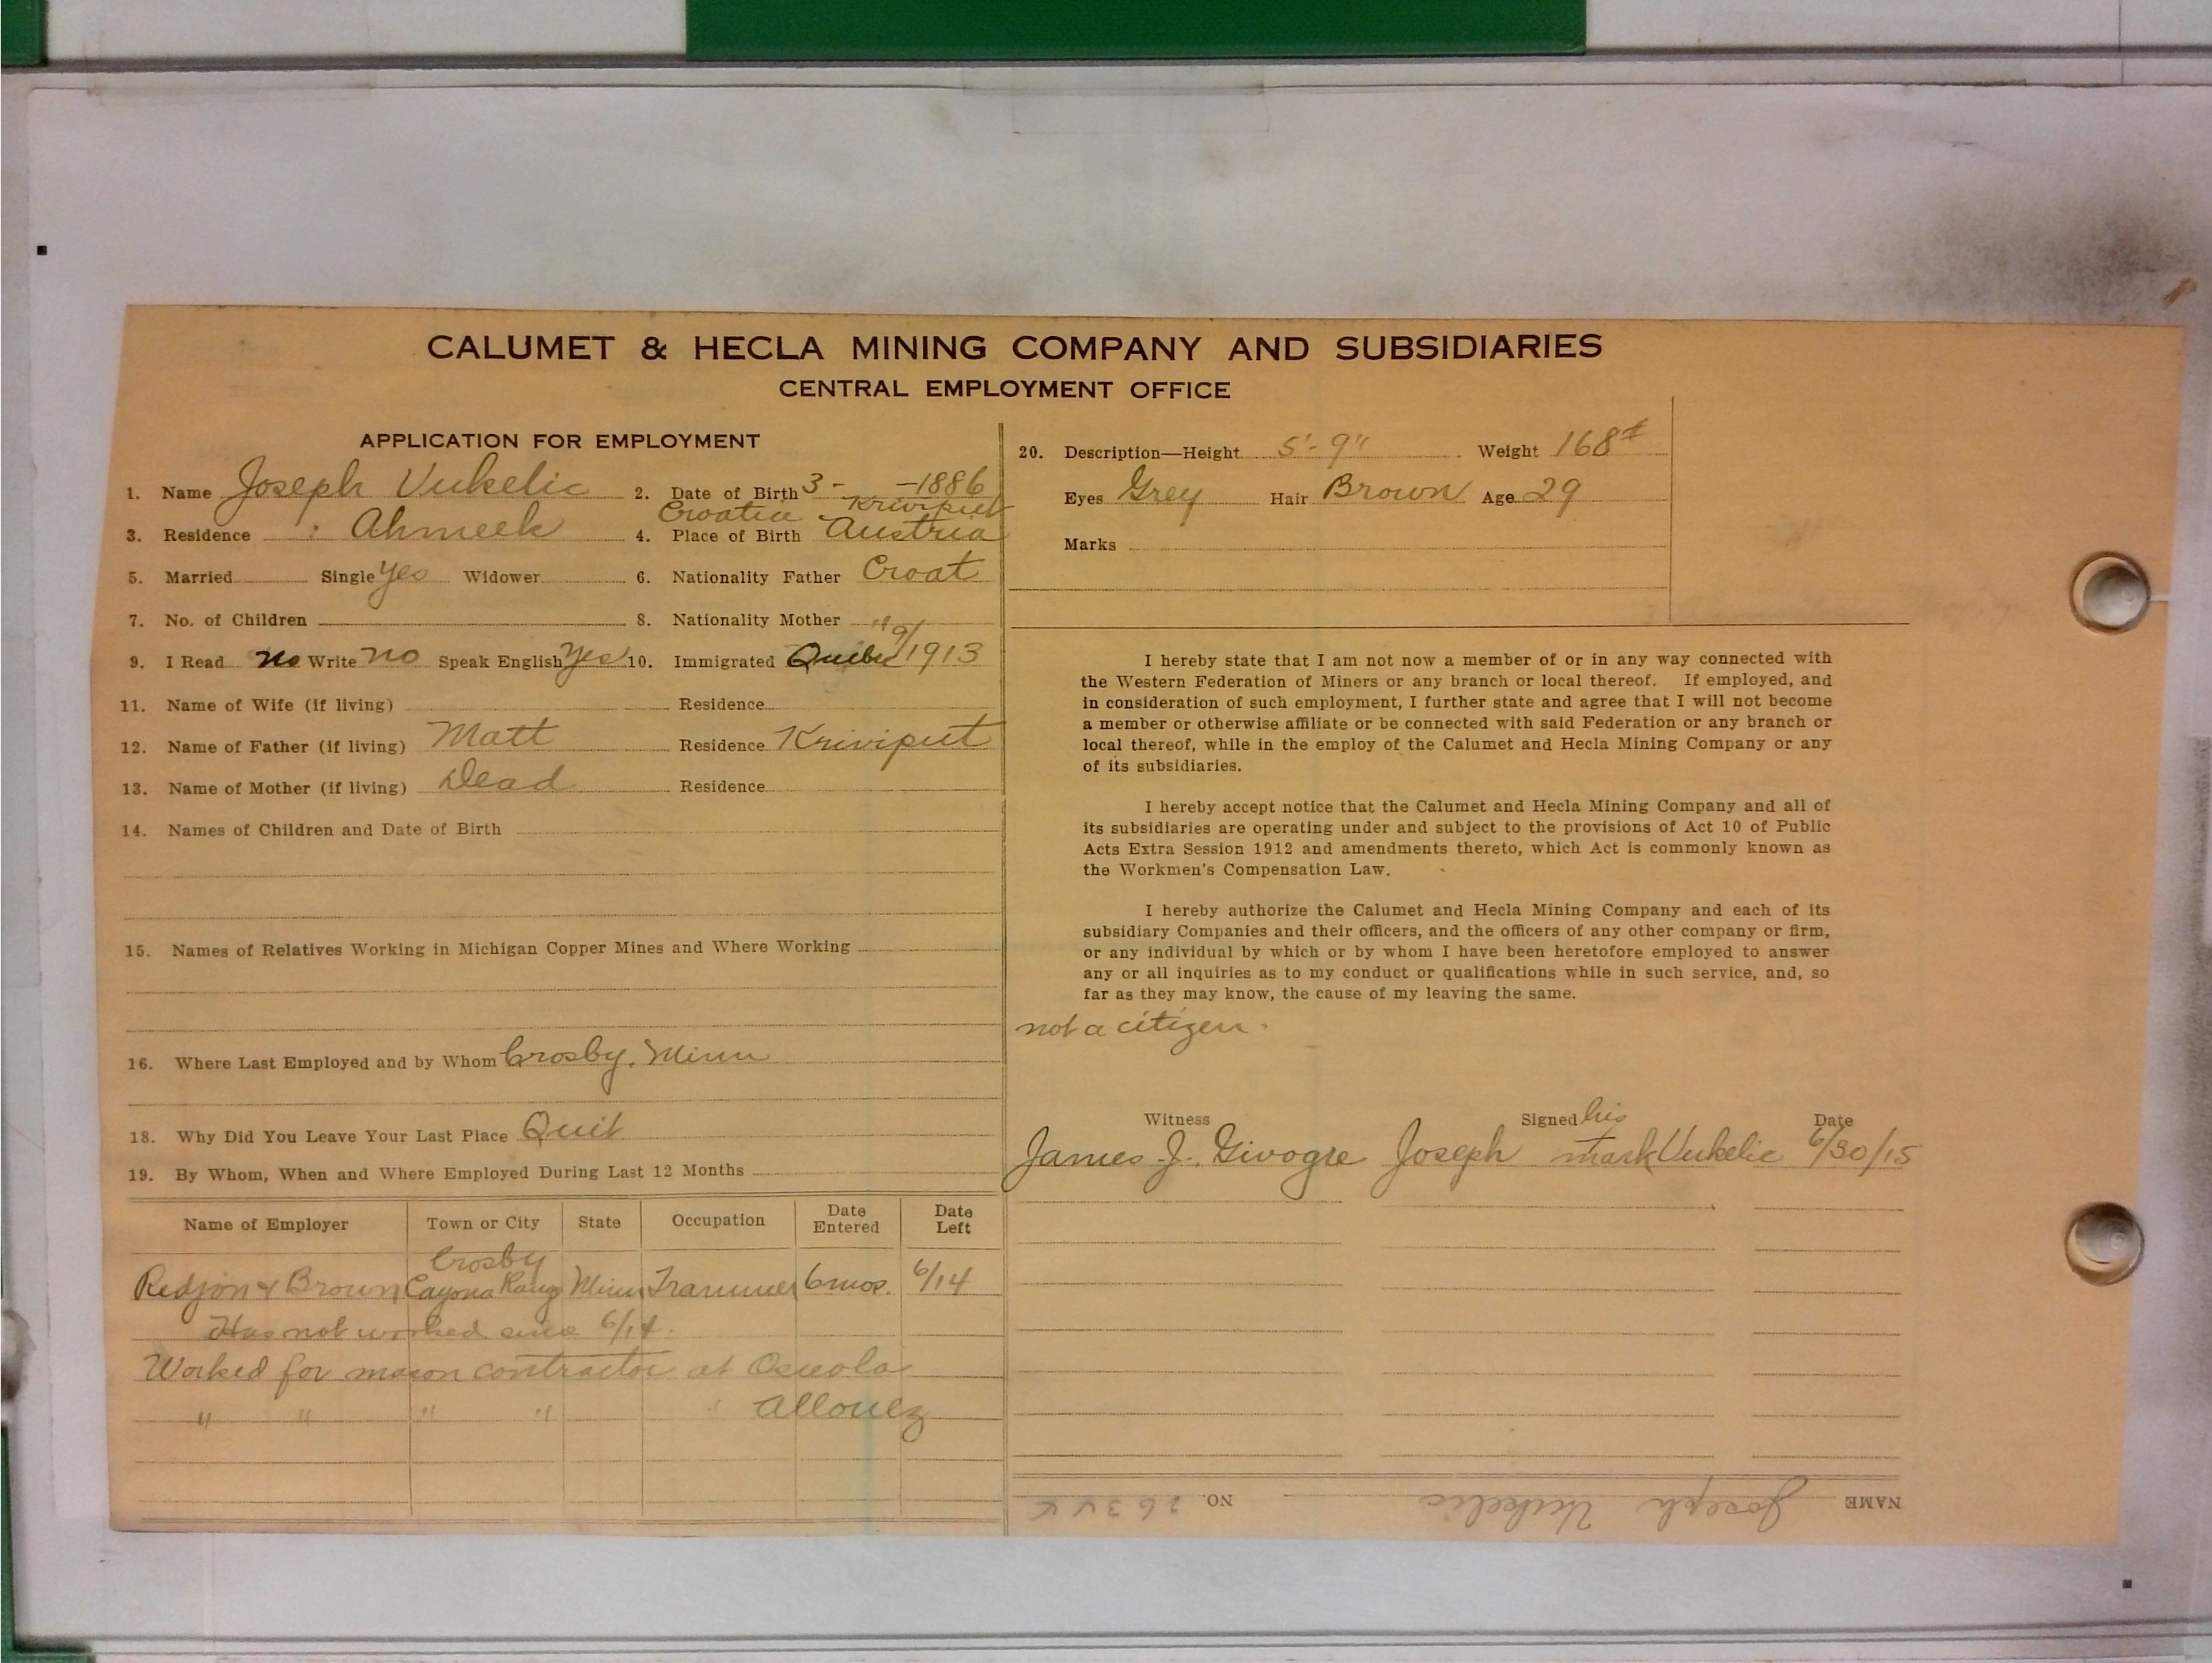 CALUMET & HECLA MINING COMPANY AND SUBSIDIARIES
CENTRAL EMPLOYMENT OFFICE
APPLICATION FOR EMPLOYMENT
1. Name Joseph Vukelic 2. Date of Birth 3 - - 1886
Croatia - Kriviput
3. Residence Ahmeek 4. Place of Birth Austria
5. Married Single Yes Widower 6. Nationality Father Croat
7. No. of Children 8. Nationality Mother "
9. I Read no Write no Speak English Yes 10. Immigrated 9/1913
11. Name of Wife (if living) Residence
12. Name of Father (if living) Matt Residence Kriviput
13. Name of Mother (if living) Dead Residence
14. Names of Children and Date of Birth
15. Names of Relatives Working in Michigan Copper Mines and Where Working
16. Where Last Employed and by Whom Crosby, Minn
18. Why Did You Leave Your Last Place Quit
19. By Whom, When and Where Employed During Last 12 Months
Name of Employer Town or City State Occupation Date Entered Date Left
Crosby
& Brown Minn Trammer 6 mos. 6/14
Has not worked since 6/14.
Worked for mason contractor at Osceola
" " " " " Allouez
20. Description—Height 5'-9" Weight 168#
Eyes Grey Hair Brown Age 29
Marks
I hereby state that I am not now a member of or in any way connected with
the Western Federation of Miners or any branch or local thereof. If employed, and
in consideration of such employment, I further state and agree that I will not become
a member or otherwise affiliate or be connected with said Federation or any branch or
local thereof, while in the employ of the Calumet and Hecla Mining Company or any
of its subsidiaries.
I hereby accept notice that the Calumet and Hecla Mining Company and all of
its subsidiaries are operating under and subject to the provisions of Act 10 of Public
Acts Extra Session 1912 and amendments thereto, which Act is commonly known as
the Workmen's Compensation Law.
I hereby authorize the Calumet and Hecla Mining Company and each of its
subsidiary Companies and their officers, and the officers of any other company or firm,
or any individual by which or by whom I have been heretofore employed to answer
any or all inquiries as to my conduct or qualifications while in such service, and, so
far as they may know, the cause of my leaving the same.
not a citizen.
Witness Signed his Date
James J. Joseph mark Vukelic 6/30/15
NAME Joseph Vukelic NO.